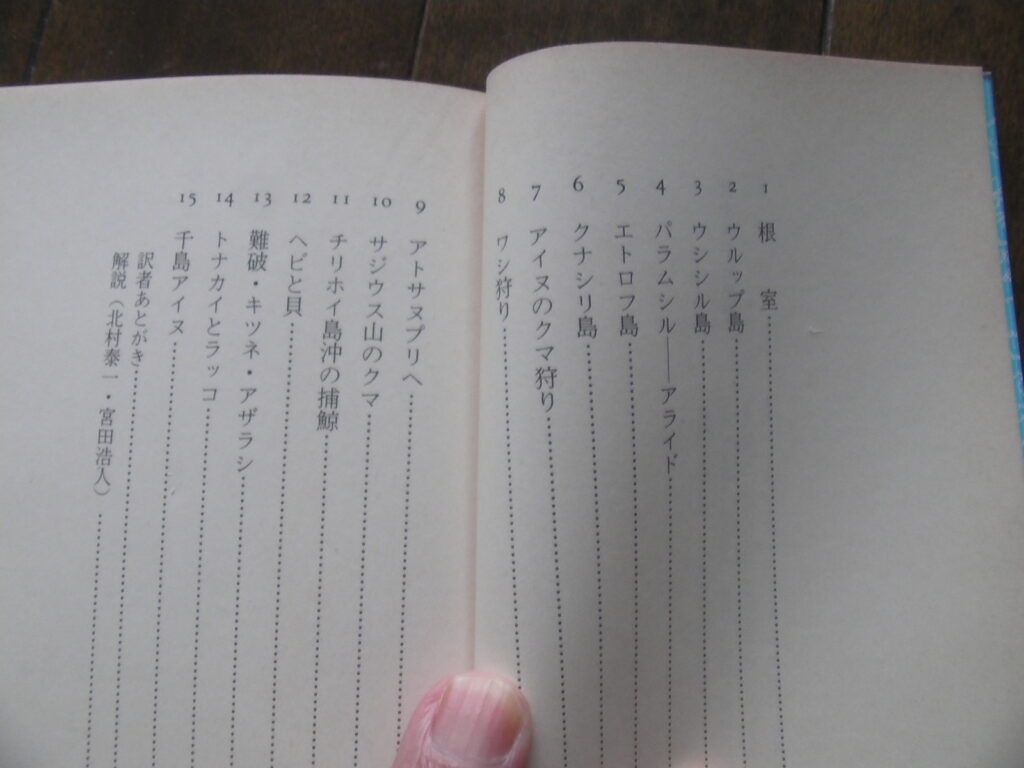 1 根室
2 ウルップ島
3 ウシシル島
4 パラムシル――アライド
5 エトロフ島
6 クナシリ島
7 アイヌのクマ狩り
8 ワシ狩り
9 アトサヌプリへ
10 サジウス山のクマ
11 チリホイ島沖の捕鯨
12 ヘビと貝
13 難破・キツネ・アザラシ
14 トナカイとラッコ
15 千島アイヌ
訳者あとがき
解説（北村泰一・宮田浩人）